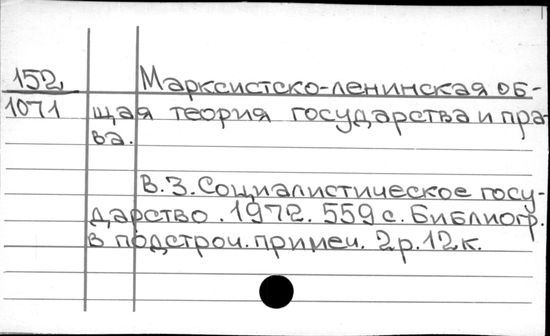 152, Марксистско-ленинская об-
1071 щая теория государства и пра-
ва.
В.3. Социалистическое госу-
дарство. 1972. 559 с. Библиогр.
в подстроч. примеч. 2 р. 12 к.